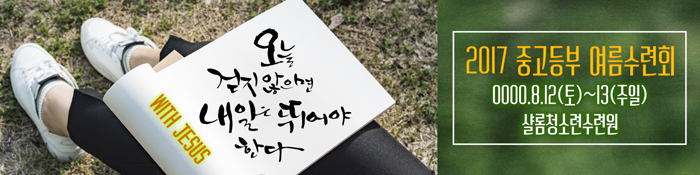 오늘
걷지 않으면
내일은 뛰어야
한다
WITH JESUS
2017 중고등부 여름수련회
0000.8.12(토)~13(주일)
샬롬청소년수련원